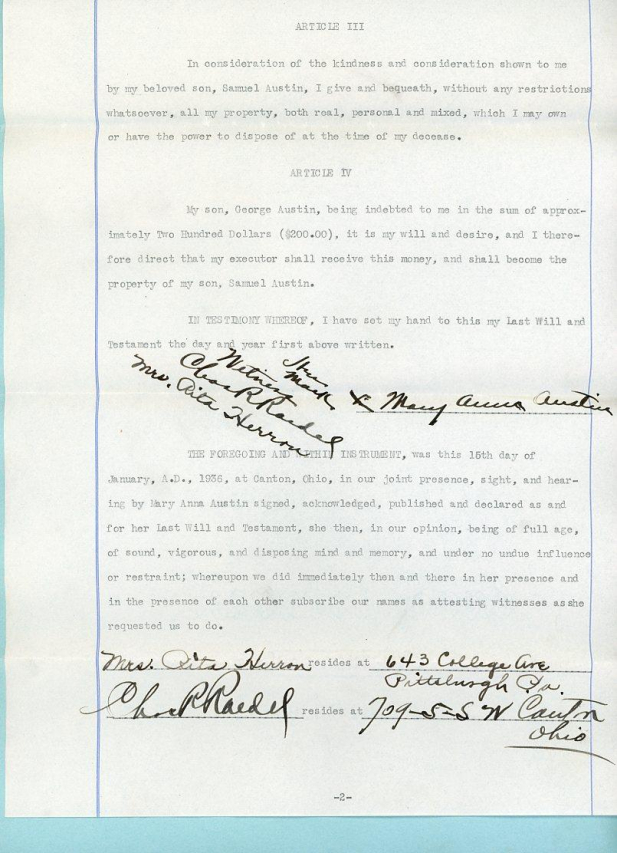 ARTICLE III
In consideration of the kindness and consideration shown to me
by my beloved son, Samuel Austin, I give and bequeath, without any restrictions
whatsoever, all my property, both real, personal and mixed, which I may own
or have the power to dispose of at the time of my decease.
ARTICLE IV
My son, George Austin, being indebted to me in the sum of approx-
imately Two Hundred Dollars ($200.00), it is my will and desire, and I there-
fore direct that my executor shall receive this money, and shall become the
property of my son, Samuel Austin.
IN TESTIMONY WHEREOF, I have set my hand to this my Last Will and
Testament the day and year first above written.
Witness
Chas R Raedel
Mrs. Rita Herron
Her
Mark
X Mary Anna Austin
THE FOREGOING AND WITHIN INSTRUMENT, was this 15th day of
January, A.D., 1936, at Canton, Ohio, in our joint presence, sight, and hear-
ing by Mary Anna Austin signed, acknowledged, published and declared as and
for her Last Will and Testament, she then, in our opinion, being of full age,
of sound, vigorous, and disposing mind and memory, and under no undue influence
or restraint; whereupon we did immediately then and there in her presence and
in the presence of each other subscribe our names as attesting witnesses as she
requested us to do.
Mrs. Rita Herron resides at 643 College Ave
Pittsburgh Pa.
Chas R Raedel resides at 709-5-S W Canton
Ohio
-2-